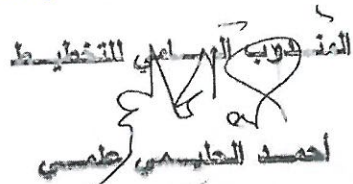 المندوب السامي للتخطيط
أحمد الحليمي علمي